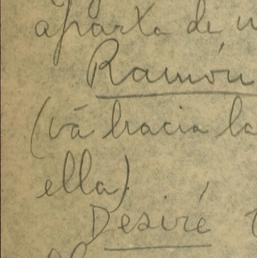 aparta de
Ramón
(vá hacia la
ella).
Desiré